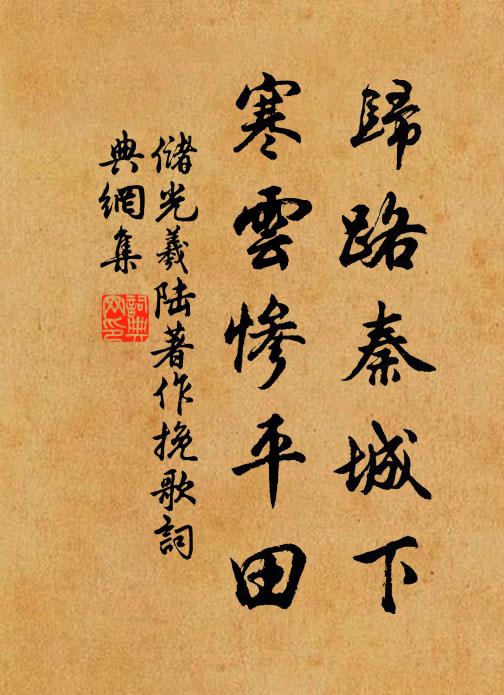 歸路秦城下
寒雲慘平田
儲光羲陆著作挽歌詞
典網集